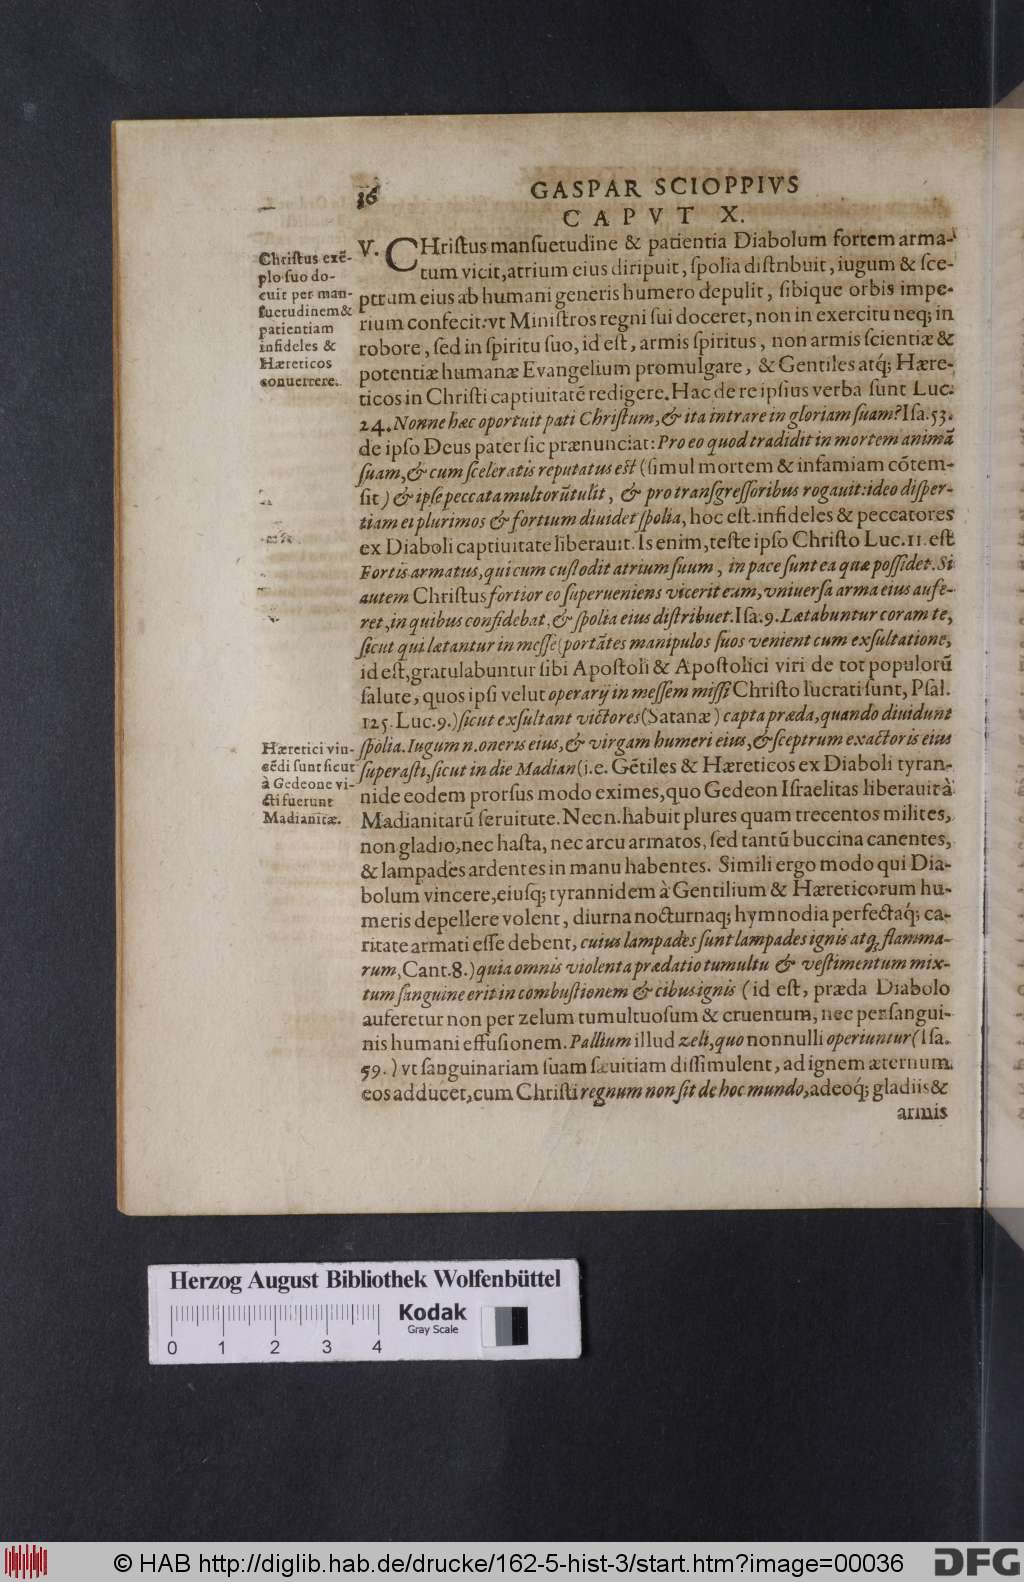 16
GASPAR SCIOPPIVS
CAPVT X.
Christus exē-
plo suo do-
cuit per man-
suetudinem &
patientiam
infideles &
Hæreticos
conuertere.
V. CHristus mansuetudine & patientia Diabolum fortem arma-
tum vicit, atrium eius diripuit, spolia distribuit, iugum & sce-
ptrum eius ab humani generis humero depulit, sibique orbis impe-
rium confecit: vt Ministros regni sui doceret, non in exercitu neq; in
robore, sed in spiritu suo, id est, armis spiritus, non armis scientiæ &
potentiæ humanæ Evangelium promulgare, & Gentiles atq́; Hære-
ticos in Christi captiuitatē redigere. Hac de re ipsius verba sunt Luc.
24. Nonne hæc oportuit pati Christum, & ita intrare in gloriam suam? Isa. 53.
de ipso Deus pater sic prænunciat: Pro eo quod tradidit in mortem animā
suam, & cum sceleratis reputatus est (simul mortem & infamiam cōtem-
sit) & ipse peccata multorū tulit, & pro transgressoribus rogauit: ideo disper-
tiam ei plurimos & fortium diuidet spolia, hoc est. infideles & peccatores
ex Diaboli captiuitate liberauit. Is enim, teste ipso Christo Luc. 11. est
Fortis armatus, qui cum custodit atrium suum, in pace sunt ea quæ possidet. Si
autem Christus fortior eo superueniens vicerit eum, vniuersa arma eius aufe-
ret, in quibus confidebat, & spolia eius distribuet. Isa. 9. Lætabuntur coram te,
sicut qui lætantur in messe (portātes manipulos suos venient cum exsultatione,
id est, gratulabuntur sibi Apostoli & Apostolici viri de tot populorū
salute, quos ipsi velut operarij in messem missi Christo lucrati sunt, Psal.
125. Luc. 9.) sicut exsultant victores (Satanæ) capta præda, quando diuidunt
spolia. Iugum n. oneris eius, & virgam humeri eius, & sceptrum exactoris eius
superasti, sicut in die Madian (i.e. Gētiles & Hæreticos ex Diaboli tyran-
nide eodem prorsus modo eximes, quo Gedeon Israelitas liberauit à
Madianitarū seruitute. Nec n. habuit plures quam trecentos milites,
non gladio, nec hasta, nec arcu armatos, sed tantū buccina canentes,
& lampades ardentes in manu habentes. Simili ergo modo qui Dia-
bolum vincere, eiusq́; tyrannidem à Gentilium & Hæreticorum hu-
meris depellere volent, diurna nocturnaq́; hymnodia perfectaq́; ca-
ritate armati esse debent, cuius lampades sunt lampades ignis atq; flamma-
rum, Cant. 8.) quia omnis violenta prædatio tumultu & vestimentum mix-
tum sanguine erit in combustionem & cibus ignis (id est, præda Diabolo
auferetur non per zelum tumultuosum & cruentum, nec per sangui-
nis humani effusionem. Pallium illud zeli, quo nonnulli operiuntur (Isa.
59.) vt sanguinariam suam sæuitiam dissimulent, ad ignem æternum
eos adducet, cum Christi regnum non sit de hoc mundo, adeoq́; gladiis &
armis
Hæretici vin-
cēdi sunt sicut
à Gedeone vi-
cti fuerunt
Madianitæ.
Herzog August Bibliothek Wolfenbüttel
0 1 2 3 4
Kodak
Gray Scale
© HAB http://diglib.hab.de/drucke/162-5-hist-3/start.htm?image=00036
DFG